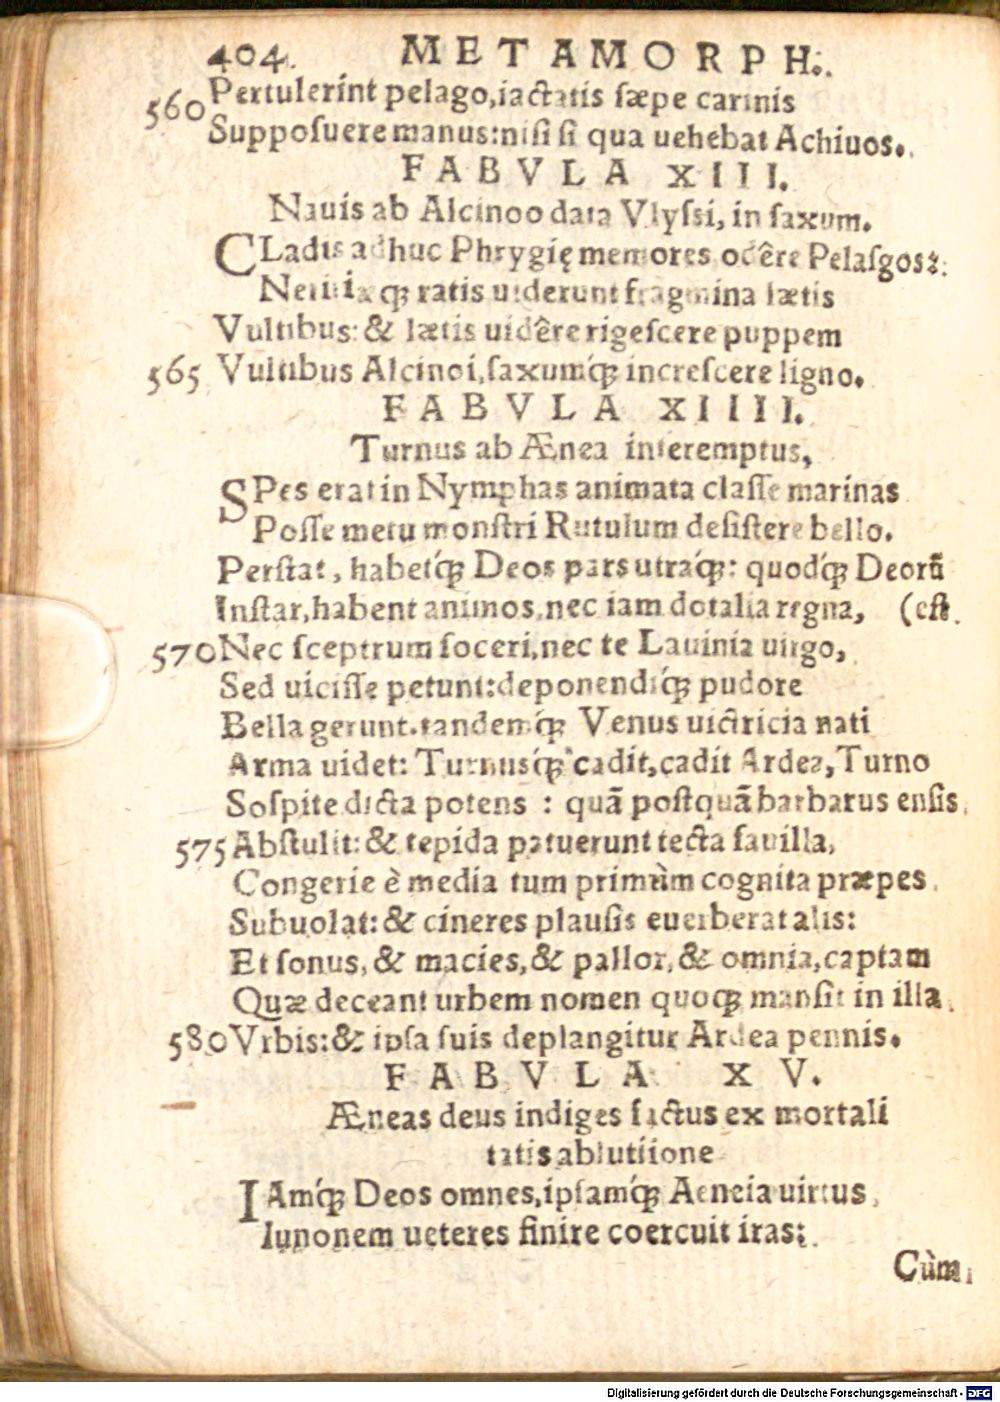 404. METAMORPH.
Pertulerint pelago, iactatis sæpe carinis
560 Supposuere manus: nisi si qua uehebat Achiuos.
FABVLA XIII.
Nauis ab Alcinoo data Vlyssi, in saxum.
CLadis adhuc Phrygię memores odêre Pelasgos:
Neritiæq́ꝫ ratis uiderunt fragmina lætis
Vultibus: & lætis uidêre rigescere puppem
565 Vultibus Alcinoi, saxumq́ꝫ increscere ligno.
FABVLA XIIII.
Turnus ab Ænea interemptus,
SPes erat in Nymphas animata classe marinas
Posse metu monstri Rutulum desistere bello.
Perstat, habetq́ꝫ Deos pars utraq́ꝫ: quodq́ꝫ Deorũ
Instar, habent animos, nec iam dotalia regna, (est.
570 Nec sceptrum soceri, nec te Lauinia uirgo,
Sed uicisse petunt: deponendiq́ꝫ pudore
Bella gerunt. tandemq́ꝫ Venus uictricia nati
Arma uidet: Turnusq́ꝫ cadit, cadit Ardea, Turno
Sospite dicta potens : quã postquã barbarus ensis
575 Abstulit: & tepida patuerunt tecta fauilla,
Congerie è media tum primùm cognita præpes
Subuolat: & cineres plausis euerberat alis:
Et sonus, & macies, & pallor, & omnia, captam
Quæ deceant urbem nomen quoqꝫ mansit in illa
580 Vrbis: & ipsa suis deplangitur Ardea pennis.
FABVLA XV.
Æneas deus indiges factus ex mortali
tatis ablutiione
IAmq́ꝫ Deos omnes, ipsamq́ꝫ Aeneia uirtus
Iunonem ueteres finire coercuit iras:
Cùm
Digitalisierung gefördert durch die Deutsche Forschungsgemeinschaft - DFG